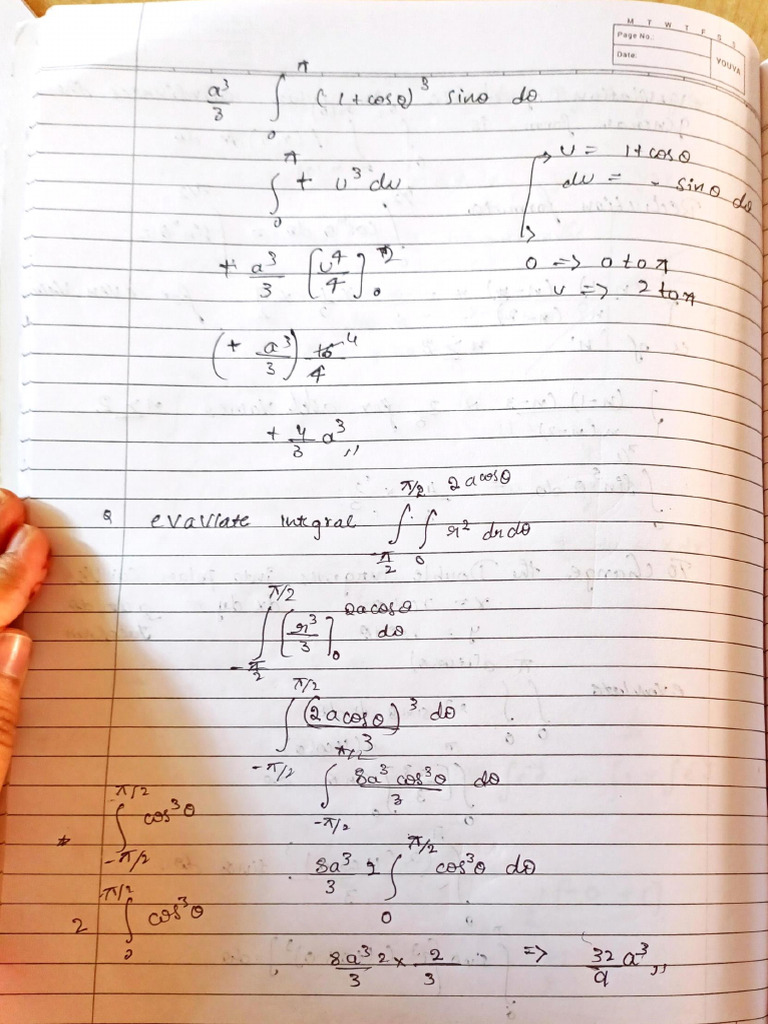 M T W T F S S
Page No.:
Date:
YOUVA
a³/3 ∫₀^π (1+cosθ)³ sinθ dθ
∫₀^π + u³ du
u = 1+cosθ
du = - sinθ dθ
+ a³/3 [u⁴/4]₀
0 => 0 to π
u => 2 to π
(+ a³/3) 4
+ 4/3 a³,,
Q evaluate integral ∫_{-π/2}^{π/2} ∫₀^{2acosθ} r² dr dθ
∫_{-π/2}^{π/2} [r³/3]₀^{2acosθ} dθ
∫_{-π/2}^{π/2} (2acosθ)³/3 dθ
∫_{-π/2}^{π/2} 8a³cos³θ/3 dθ
* ∫_{-π/2}^{π/2} cos³θ
8a³/3 2 ∫₀^{π/2} cos³θ dθ
2 ∫₀^{π/2} cos³θ
8a³/3 2 × 2/3 => 32/9 a³,,